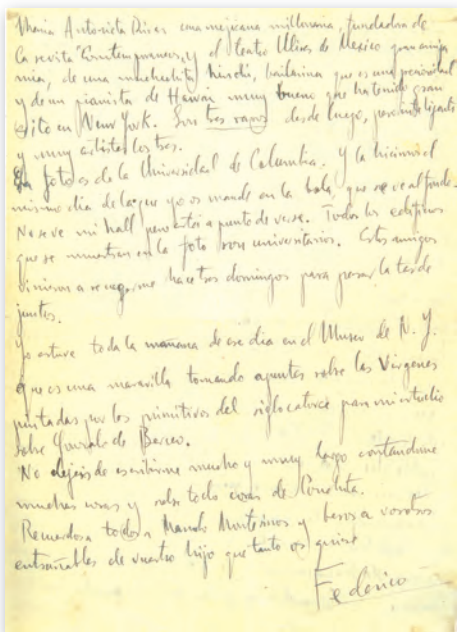 Maria Antonieta Rivas una mejicana millonaria, fundadora de
la revista "Contemporaneos, y el teatro Ulises de Mexico gran amiga
mia, de una muchachita hindú, bailarina que es una preciosidad
y de un pianista de Hawai muy bueno que ha tenido gran
éxito en New York. Son tres raros desde luego, pero inteligentes
y muy artistas los tres.
La foto es de la Universidad de Columbia. Y la hicimos el
mismo dia de la que yo os mande en la bola, que se ve al fondo.
No se ve mi hall pero está a punto de verse. Todos los edificios
que se muestran en la foto son universitarios. Estos amigos
vinieron a recogerme hace tres domingos para pasar la tarde
juntos.
Yo estuve toda la mañana de ese dia en el Museo de N. Y.
que es una maravilla tomando apuntes sobre las Virgenes
pintadas por los primitivos del siglo catorce para mi estudio
sobre Gonzalo de Berceo.
No dejeis de escribirme mucho y muy largo contandome
muchas cosas y sobre todo cosas de Conchita.
Recuerdos a todos a Manolo Montesinos y besos a vosotros
entrañables de vuestro hijo que tanto os quiere
Federico